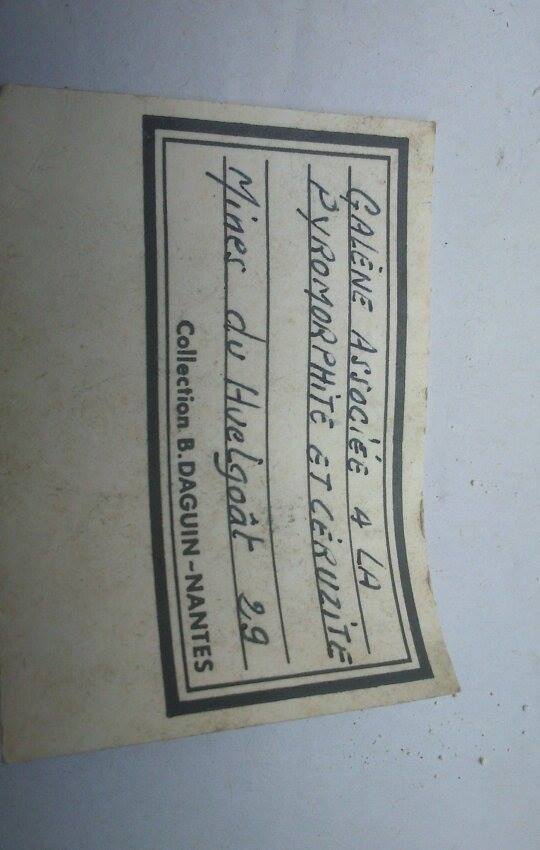 GALÈNE ASSOCIÉE A LA
PYROMORPHITE ET CÉRUZITE
Mines du Huelgoât 29
Collection B. DAGUIN-NANTES